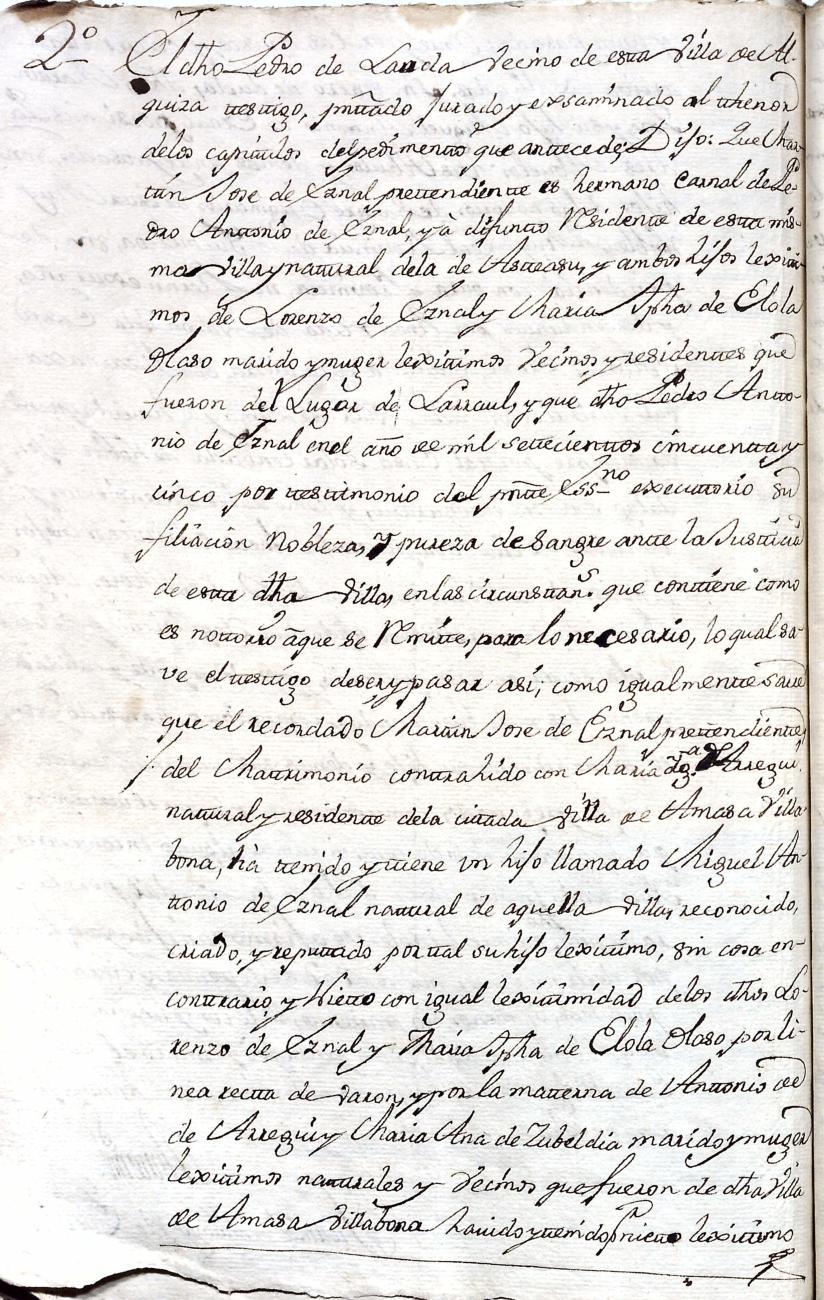 2º El dho Pedro de Landa vecino de esta villa de Al-
quiza testigo, presentado jurado y exsaminado al thenor
delos capitulos del pedimento que antecede; Dijo: Que Mar-
tin Jose de Eznal prettendiente es hermano carnal de Pe-
dro Antonio de Eznal, yà difunto Residente de esta mis-
ma villa y natural dela de Asteasu, y ambos hijos lexiti-
mos de Lorenzo de Eznal y Maria Jpha de Elola
Olaso marido y muger lexitimos vecinos y residentes que
fueron del Lugar de Larraul, y que dho Pedro Anto-
nio de Eznal en el año de mil settecientos cincuenta y
cinco por testimonio del pntte Essno executorio su
filiación Nobleza, y pureza de sangre ante la Justicia
de esta dha villa, en las circunstans. que contiene como
es nottorio àque se Remitte, para lo necesario, lo qual sa-
ve el testigo deser y pasar asi; como igualmente save
que el recordado Martin Jose de Eznal prettendiente,
del Matrimonio contrahido con Maria Dga. de Arregui,
natural y residente dela citada villa de Amasa Villa-
bona, hà tenido y tiene un hijo llamado Miguel An-
tonio de Eznal natural de aquella villa, reconocido,
criado, y reputado por tal su hijo lexitimo, sin cosa en-
contrario, y Nietto con igual lexitimidad delos dhos Lo-
renzo de Eznal y Maria Jpha de Elola Olaso por li-
nea rectta de varon, y por la matterna de Antonio de
de Arregui y Maria Ana de Zubeldia marido y muger
lexitimos naturales y vecinos que fueron de dha Villa
de Amasa Villabona havido y tenido nietto lexitimo